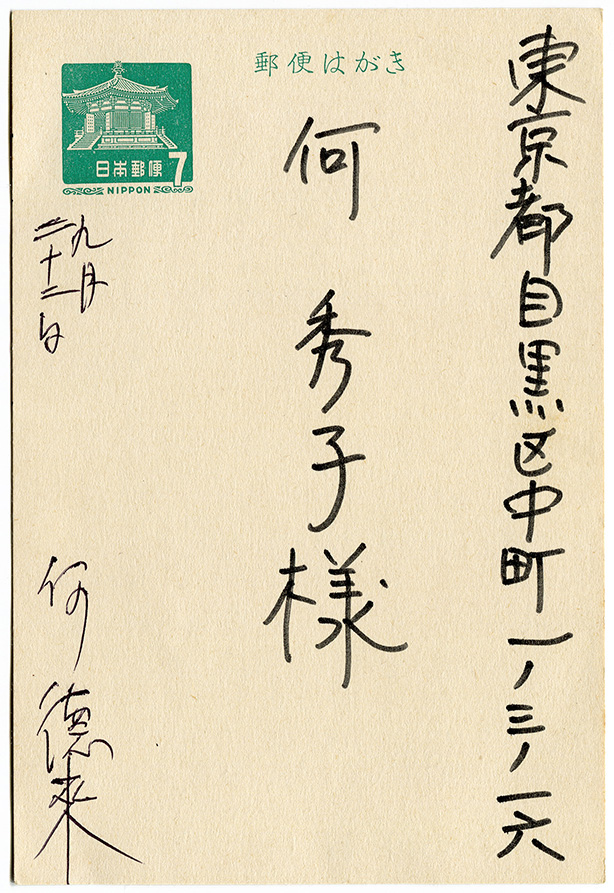 郵便はがき
日本郵便 7
NIPPON
東京都目黒区中町一ノ三ノ一六
何 秀子様
九月
二十二日
何 德來